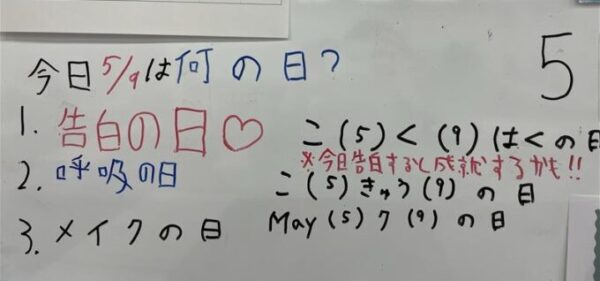 今日5/9は何の日?
5
1. 告白の日♡
こ(5)く(9)はくの日
※今日告白すると成就するかも!!
2. 呼吸の日
こ(5)きゅう(9)の日
3. メイクの日
May(5)ク(9)の日